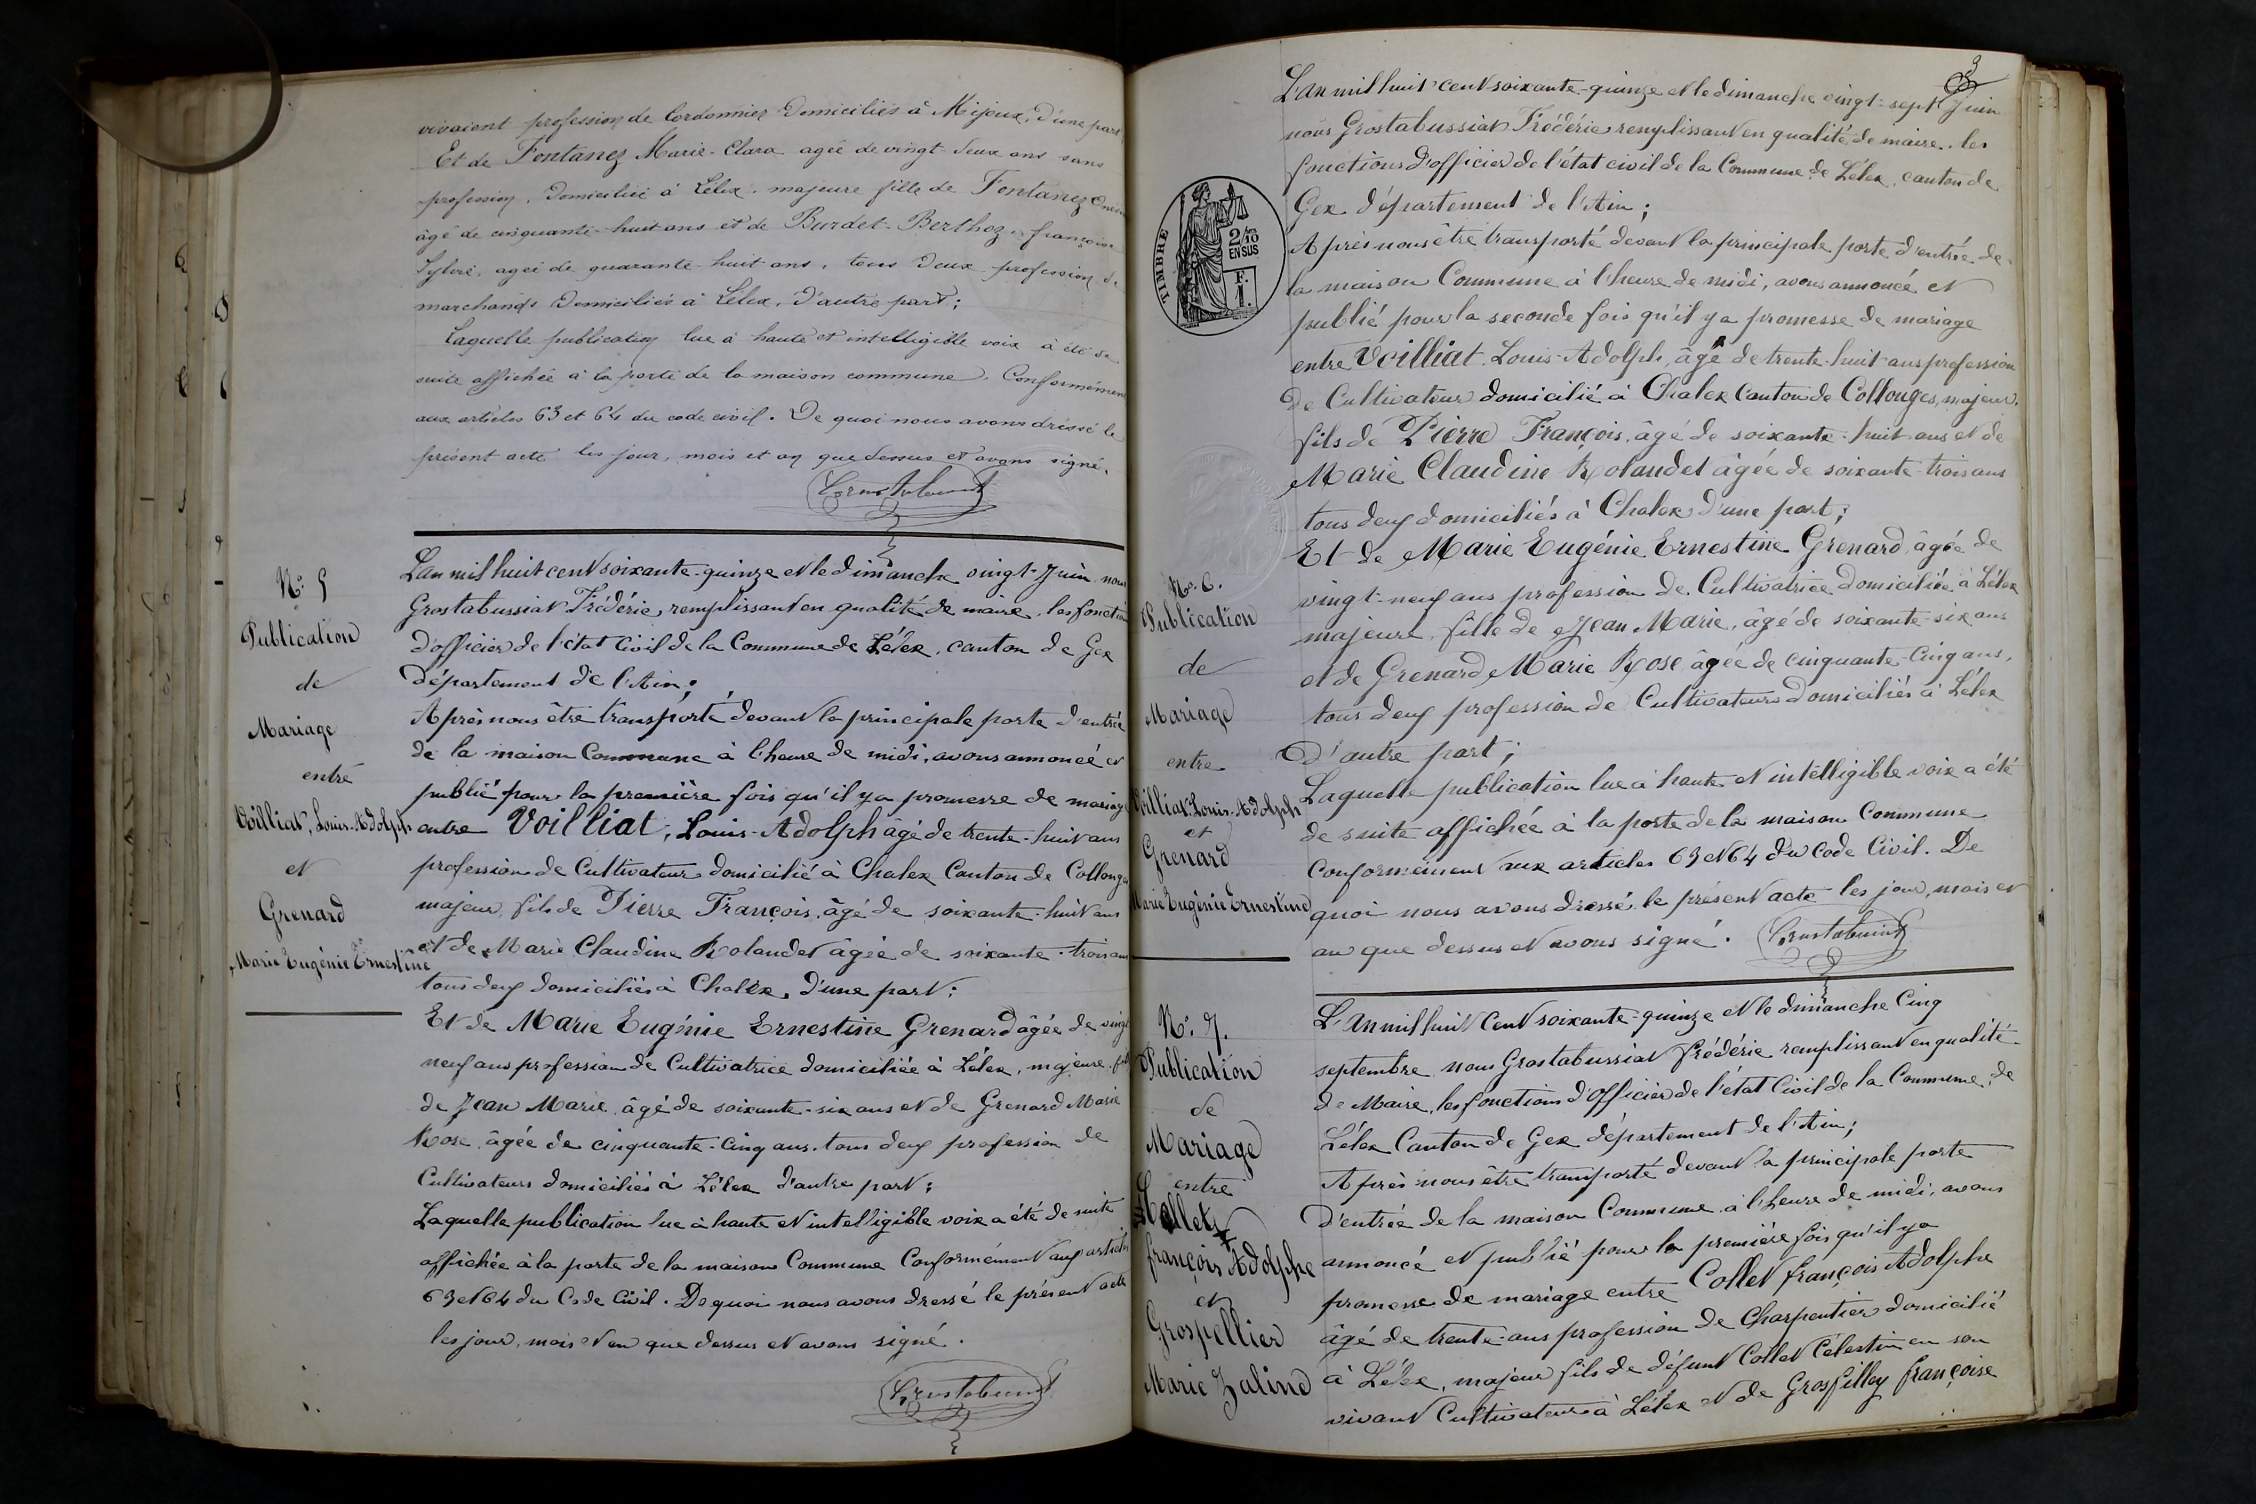 vivaient profession de Cordonnier Domiciliés à Mijoux, d'une part
Et de Fontanez Marie-Clara agée de vingt-deux ans sans
profession, Domiciliée à Lélex, majeure fille de Fontanez
âgé de cinquante-huit ans et de Burdet-Berthoz françoise
Sylvie, agée de quarante-huit ans, tous deux profession de
marchands Domiciliés à Lélex, d'autre part;
Laquelle publication lue à haute et intelligible voix à été de
suite affichée à la porte de la maison commune, Conformément
aux articles 63 et 64 du code civil. De quoi nous avons dressé le
présent acte les jour, mois et an que dessus et avons signé.
Grostabussiat
N° 5
Publication
de
Mariage
entre
Voilliat, Louis-Adolph
et
Grenard
Marie Eugénie Ernestine
L'an mil huit cent soixante-quinze et le dimanche vingt Juin nous
Grostabussiat Frédéric, remplissant en qualité de maire, les fonctions
d'officier de l'état Civil de la Commune de Lélex, canton de Gex
département de l'Ain;
Après nous être transporté devant la principale porte d'entrée
de la maison Commune à l'heure de midi, avons annoncé et
publié pour la première fois qu'il y a promesse de mariage
entre Voilliat, Louis-Adolph âgé de trente-huit ans
profession de Cultivateur domicilié à Chalex Canton de Collonges
majeur, fils de Pierre François, âgé de soixante-huit ans
et de Marie Claudine Rolandet âgée de soixante-trois ans
tous deux domiciliés à Chalex, d'une part;
Et de Marie Eugénie Ernestine Grenard âgée de vingt
neuf ans profession de Cultivatrice domiciliée à Lélex, majeure, fille
de Jean Marie, âgé de soixante-six ans et de Grenard Marie
Rose, âgée de cinquante-cinq ans, tous deux profession de
Cultivateurs domiciliés à Lélex d'autre part;
Laquelle publication lue à haute et intelligible voix a été de suite
affichée à la porte de la maison Commune Conformément aux articles
63 et 64 du Code Civil. De quoi nous avons dressé le présent acte
les jour, mois et an que dessus et avons signé.
Grostabussiat
3
L'an mil huit cent soixante-quinze et le dimanche vingt-sept Juin
nous Grostabussiat Frédéric remplissant en qualité de maire, les
fonctions d'officier de l'état civil de la Commune de Lélex, canton de
Gex département de l'Ain;
Après nous être transporté devant la principale porte d'entrée de
la maison Commune à l'heure de midi, avons annoncé et
publié pour la seconde fois qu'il y a promesse de mariage
entre Voilliat Louis-Adolph, âgé de trente-huit ans profession
de Cultivateur domicilié à Chalex Canton de Collonges, majeur,
fils de Pierre François, âgé de soixante-huit ans et de
Marie Claudine Rolandet âgée de soixante-trois ans
tous deux domiciliés à Chalex d'une part;
Et de Marie Eugénie Ernestine Grenard, âgée de
vingt-neuf ans profession de Cultivatrice domiciliée à Lélex
majeure, fille de Jean Marie, âgé de soixante-six ans
et de Grenard Marie Rose âgée de cinquante-cinq ans,
tous deux profession de Cultivateurs domiciliés à Lélex
d'autre part;
Laquelle publication lue à haute et intelligible voix a été
de suite affichée à la porte de la maison Commune
conformément aux articles 63 et 64 du Code Civil. De
quoi nous avons dressé le présent acte les jour, mois et
an que dessus et avons signé. Grostabussiat
TIMBRE
2/10
EN SUS
F.
1.
N° 6.
Publication
de
Mariage
entre
Voilliat Louis-Adolph
et
Grenard
Marie Eugénie Ernestine
N° 7.
Publication
de
Mariage
entre
Collet
françois Adolphe
et
Grospellier
Marie Zaline
L'An mil huit cent soixante-quinze et le dimanche Cinq
septembre nous Grostabussiat frédéric remplissant en qualité
de Maire, les fonctions d'Officier de l'état Civil de la Commune de
Lélex Canton de Gex département de l'Ain;
Après nous être transporté devant la principale porte
d'entrée de la maison Commune à l'heure de midi, avons
annoncé et publié pour la première fois qu'il y a
promesse de mariage entre Collet françois Adolphe
âgé de trente ans profession de Charpentier domicilié
à Lélex, majeur fils de défunt Collet Célestin en son
vivant Cultivateur à Lélex et de Grosfilley françoise